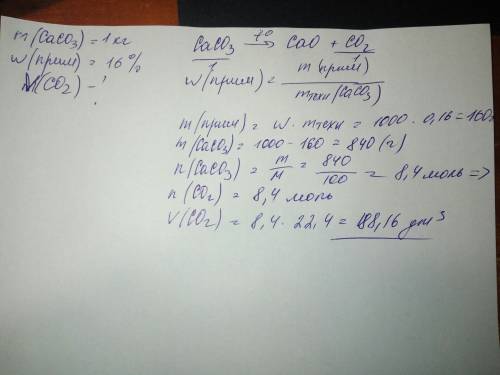 m(CaCO3) = 1 кг
w(прим) = 16%
V(CO2) - ?
CaCO3 t° → CaO + CO2
1 1
w(прим) = m(прим) / mтехн(CaCO3)
m(прим) = w · mтехн = 1000 · 0,16 = 160г
m(CaCO3) = 1000 - 160 = 840 (г)
n(CaCO3) = m/M = 840/100 = 8,4 моль =>
n(CO2) = 8,4 моль
V(CO2) = 8,4 · 22,4 = 188,16 дм³